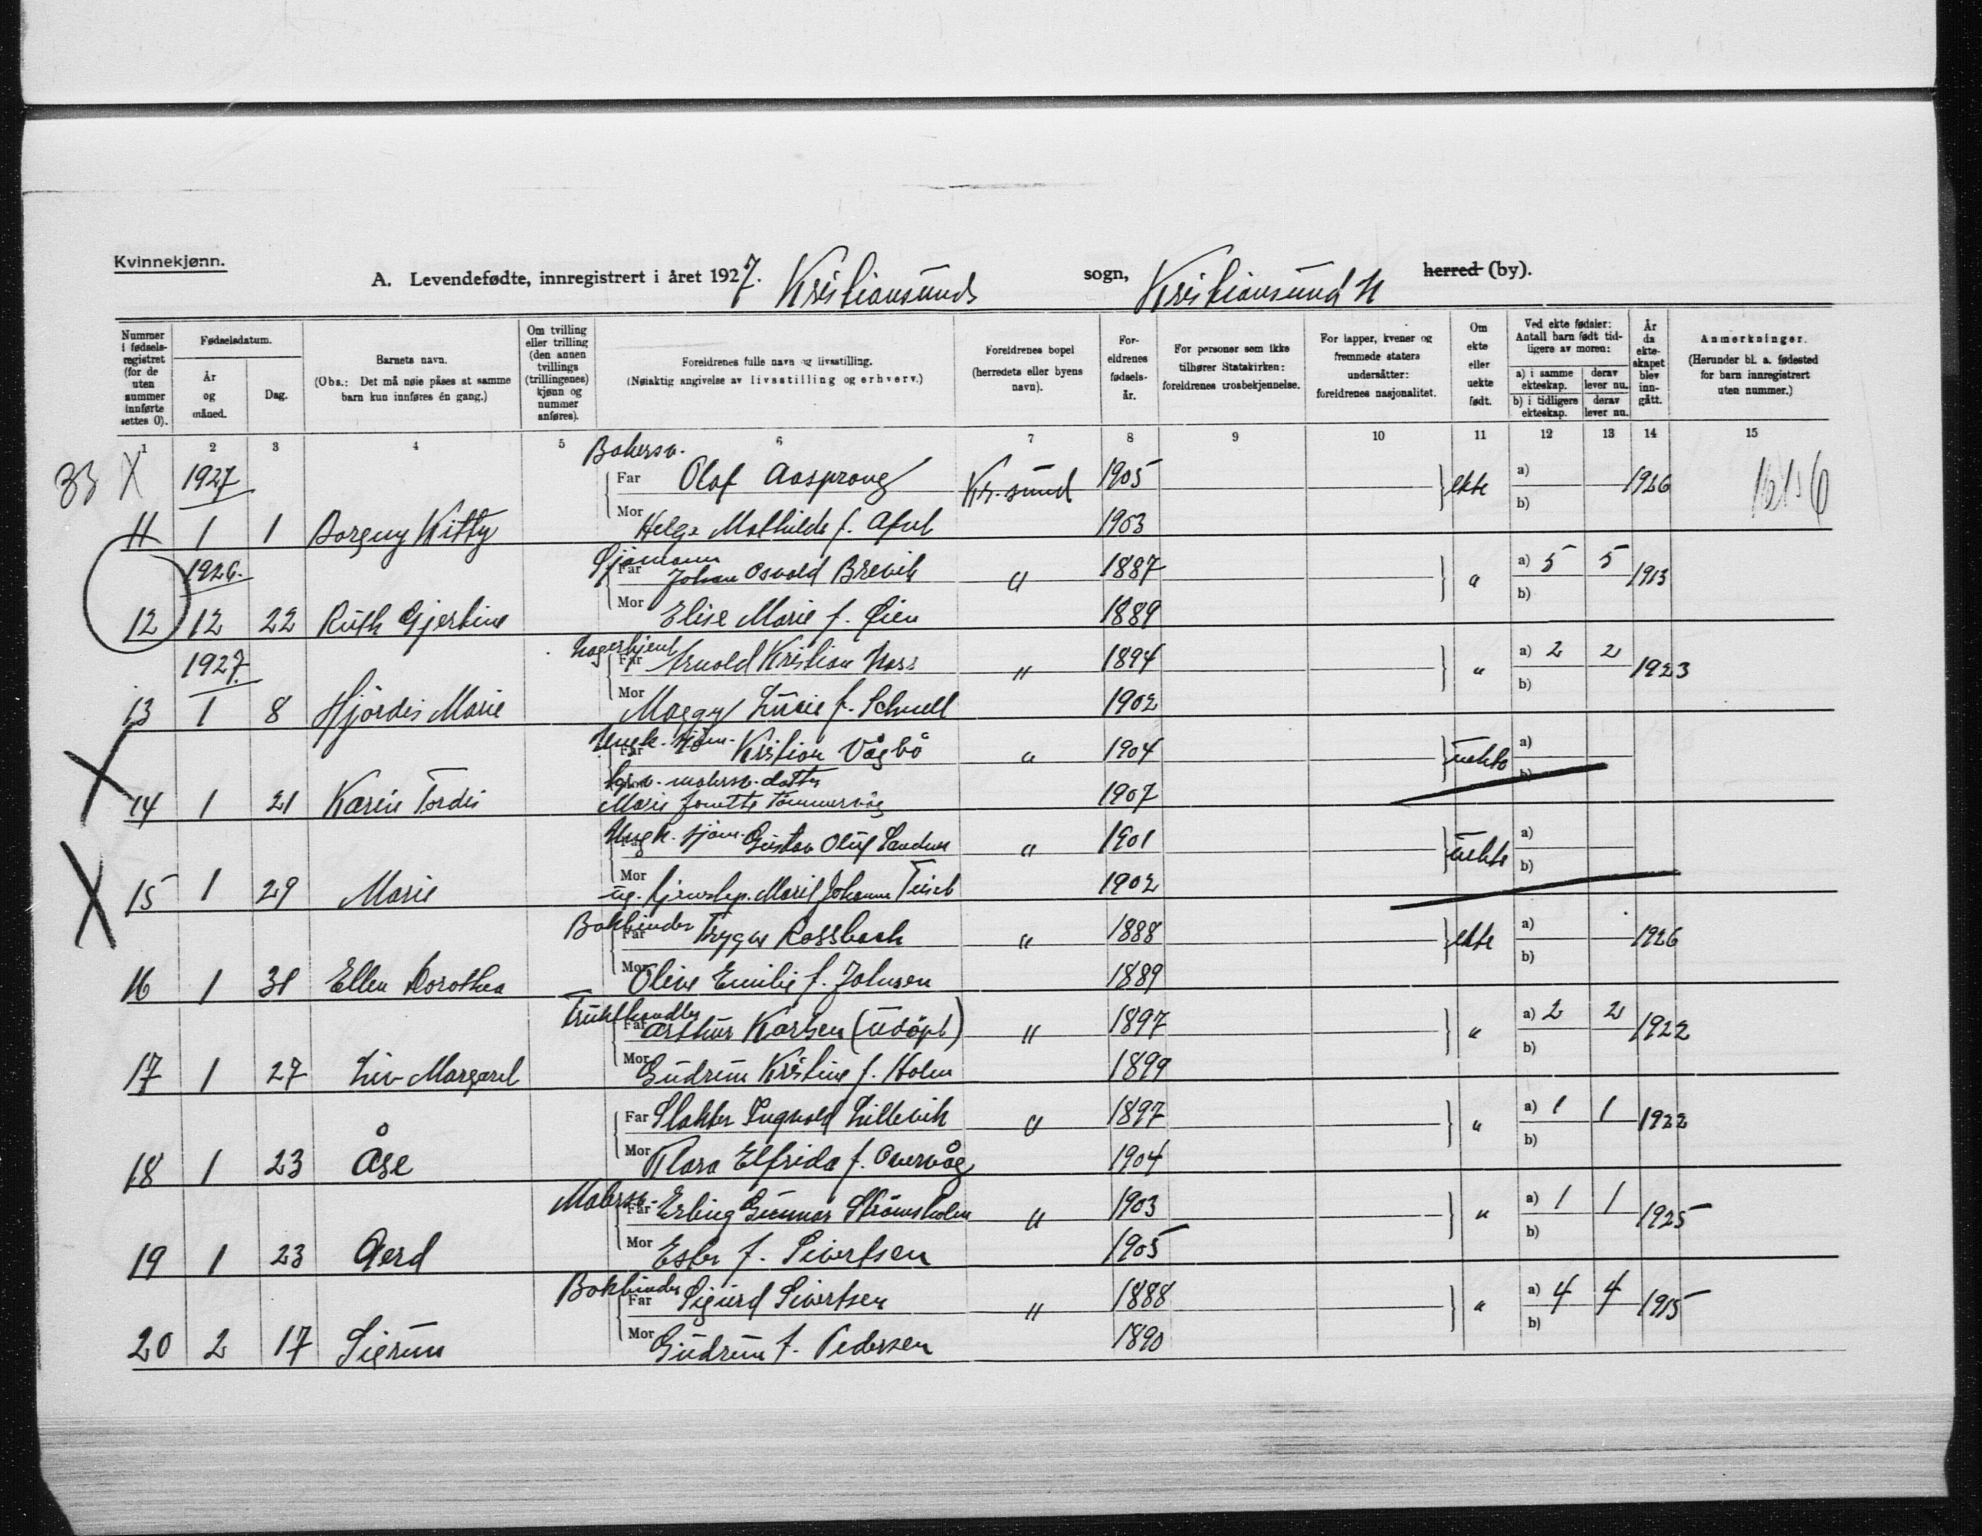 Kvinnekjønn.
A. Levendefødte, innregistrert i året 1927. Kristiansunds sogn, Kristiansund N herred (by).
Nummer i fødselsregistret (for de uten nummer innførte settes 0).
Fødselsdatum.
År og måned.
Dag.
Barnets navn.
(Obs.: Det må nøie påses at samme barn kun innføres én gang.)
Om tvilling eller trilling (den annen tvillings (trillingenes) kjønn og nummer anføres).
Foreldrenes fulle navn og livsstilling.
(Nøiaktig angivelse av livsstilling og erhverv.)
Foreldrenes bopel (herredets eller byens navn).
Foreldrenes fødselsår.
For personer som ikke tilhører Statskirken: foreldrenes trosbekjennelse.
For lapper, kvener og fremmede staters undersåtter: foreldrenes nasjonalitet.
Om ekte eller uekte født.
Ved ekte fødsler: Antall barn født tidligere av moren:
a) i samme ekteskap. derav lever nu.
b) i tidligere ekteskap. derav lever nu.
År da ekteskapet blev inngått.
Anmerkninger.
(Herunder bl. a. fødested for barn innregistrert uten nummer.)
1 2 3 4 5 6 7 8 9 10 11 12 13 14 15
33 X 1927 Bakersv. Far Olaf Aasprong Kr.sund 1905 ekte a) b) 1926
11 1 1 Borgny Kitty Mor Helga Mathilde f. 1903
1926. Sjömann Far Johan Osvald Brevik " 1887 " a) 5 5 b) 1913
12 12 22 Ruth Gjertine Mor Elise Marie f. Øien 1889
1927. Lagerbjent Far Arnold Kristian " 1894 " a) 2 2 b) 1923
13 1 8 Hjördis Marie Mor Maggy Lucie f. Schnell 1902
Ungk. sjöm. Far Kristian Vågbö " 1904 uekte a) b)
14 1 21 Karin Tordis Mor malersv. datter Marie Jonette Tömmervåg 1907
Ungk. sjöm. Far Gustav Oluf " 1901 uekte a) b)
15 1 29 Marie Mor ug. Marit Johanne 1902
Bokbinder Far Trygve Rossbach " 1888 ekte a) b) 1926
16 1 31 Ellen Dorothea Mor Oline Emilie f. Johnsen 1889
Frukthandler Far Arthur Karlsen (udöpt) " 1897 " a) 2 2 b) 1922
17 1 27 Liv Margaret Mor Gudrun Kristine f. Holm 1899
Far Slakter Ingvald Lillevik " 1897 " a) 1 1 b) 1922
18 1 23 Åse Mor Klara Elfrida f. Overvåg 1904
Malersv. Far Erling Gunnar Strömsholm " 1903 " a) 1 1 b) 1925
19 1 23 Gerd Mor Ester f. Sivertsen 1905
Bokbinder Far Sigurd Sivertsen " 1888 " a) 4 4 b) 1915
20 2 17 Sigrun Mor Gudrun f. Pedersen 1890